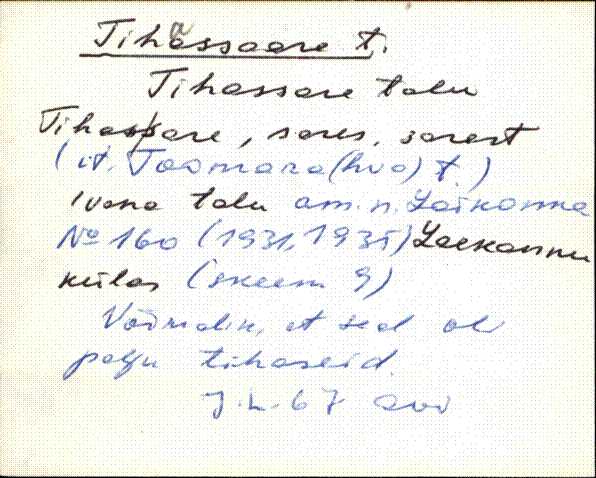 Tihassaare t.
Tihassare talu
Tihassare, sares, sarest
(it. Toomara(hva) t.)
vana talu am. n. Laikanna
№ 160 (1931, 1935) Laekannu
külas (skeem 9)
Võimalik, et seal oli
palju tihaseid.
J.L. 67